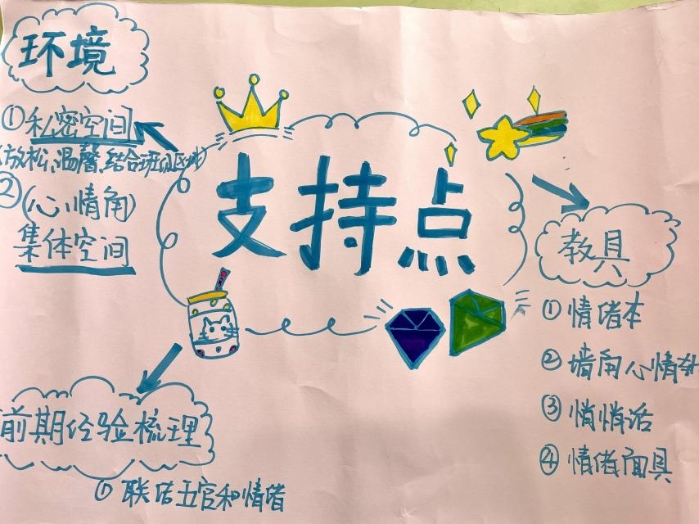 环境
① 私密空间
(放松、温馨、结合班级区域)
② (心情角)
集体空间
支持点
教具
① 情绪本
② 墙角心情
③ 悄悄话
④ 情绪面具
前期经验梳理
① 联结五官和情绪